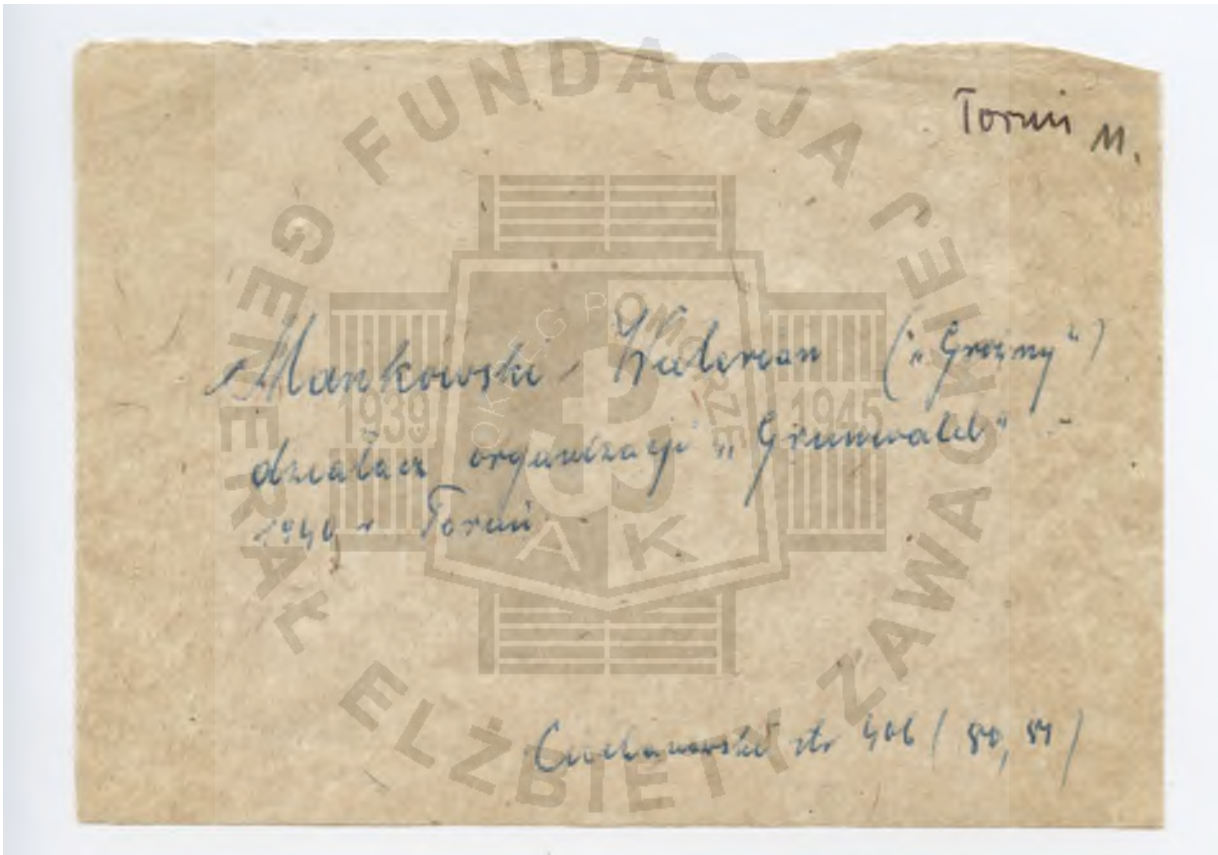 Toruń M.
Mankowski Walerian ("Groźny")
działacz organizacji "Grunwald"
1940 r Toruń
Ciechanowski str 406 (80, 81)
FUNDACJA GENERAŁ ELŻBIETY ZAWACKIEJ
OKRĘG POMORZE
1939 1945
AK